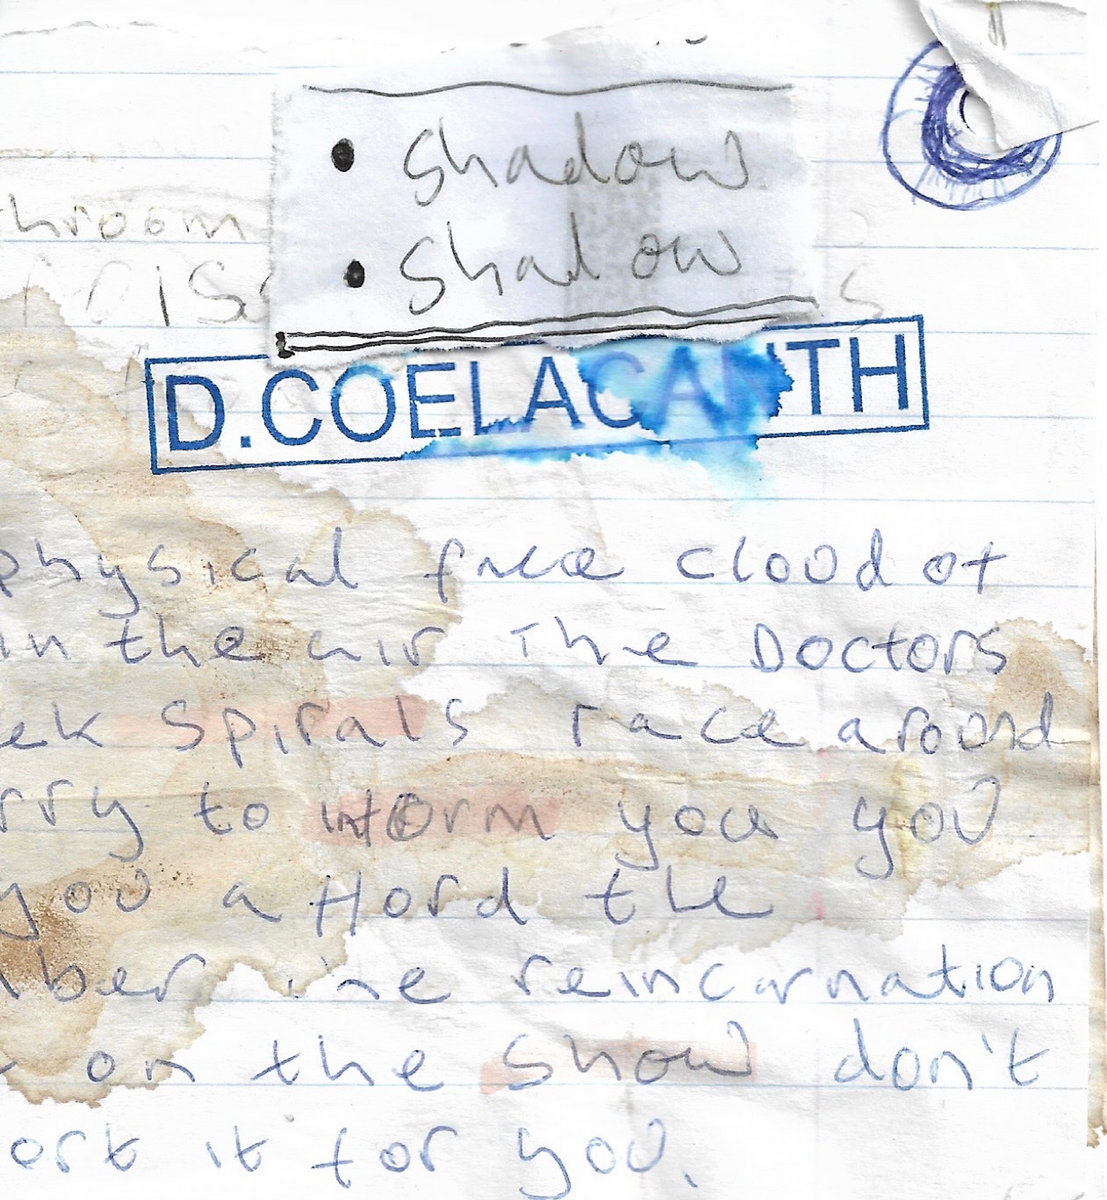 • shadow
• shadow
hroom
D.COELACANTH
physical free cloud of
in the air The Doctors
ek spirals race around
rry to inform you you
you afford the
ber the reincarnation
on the show don't
ork it for you.